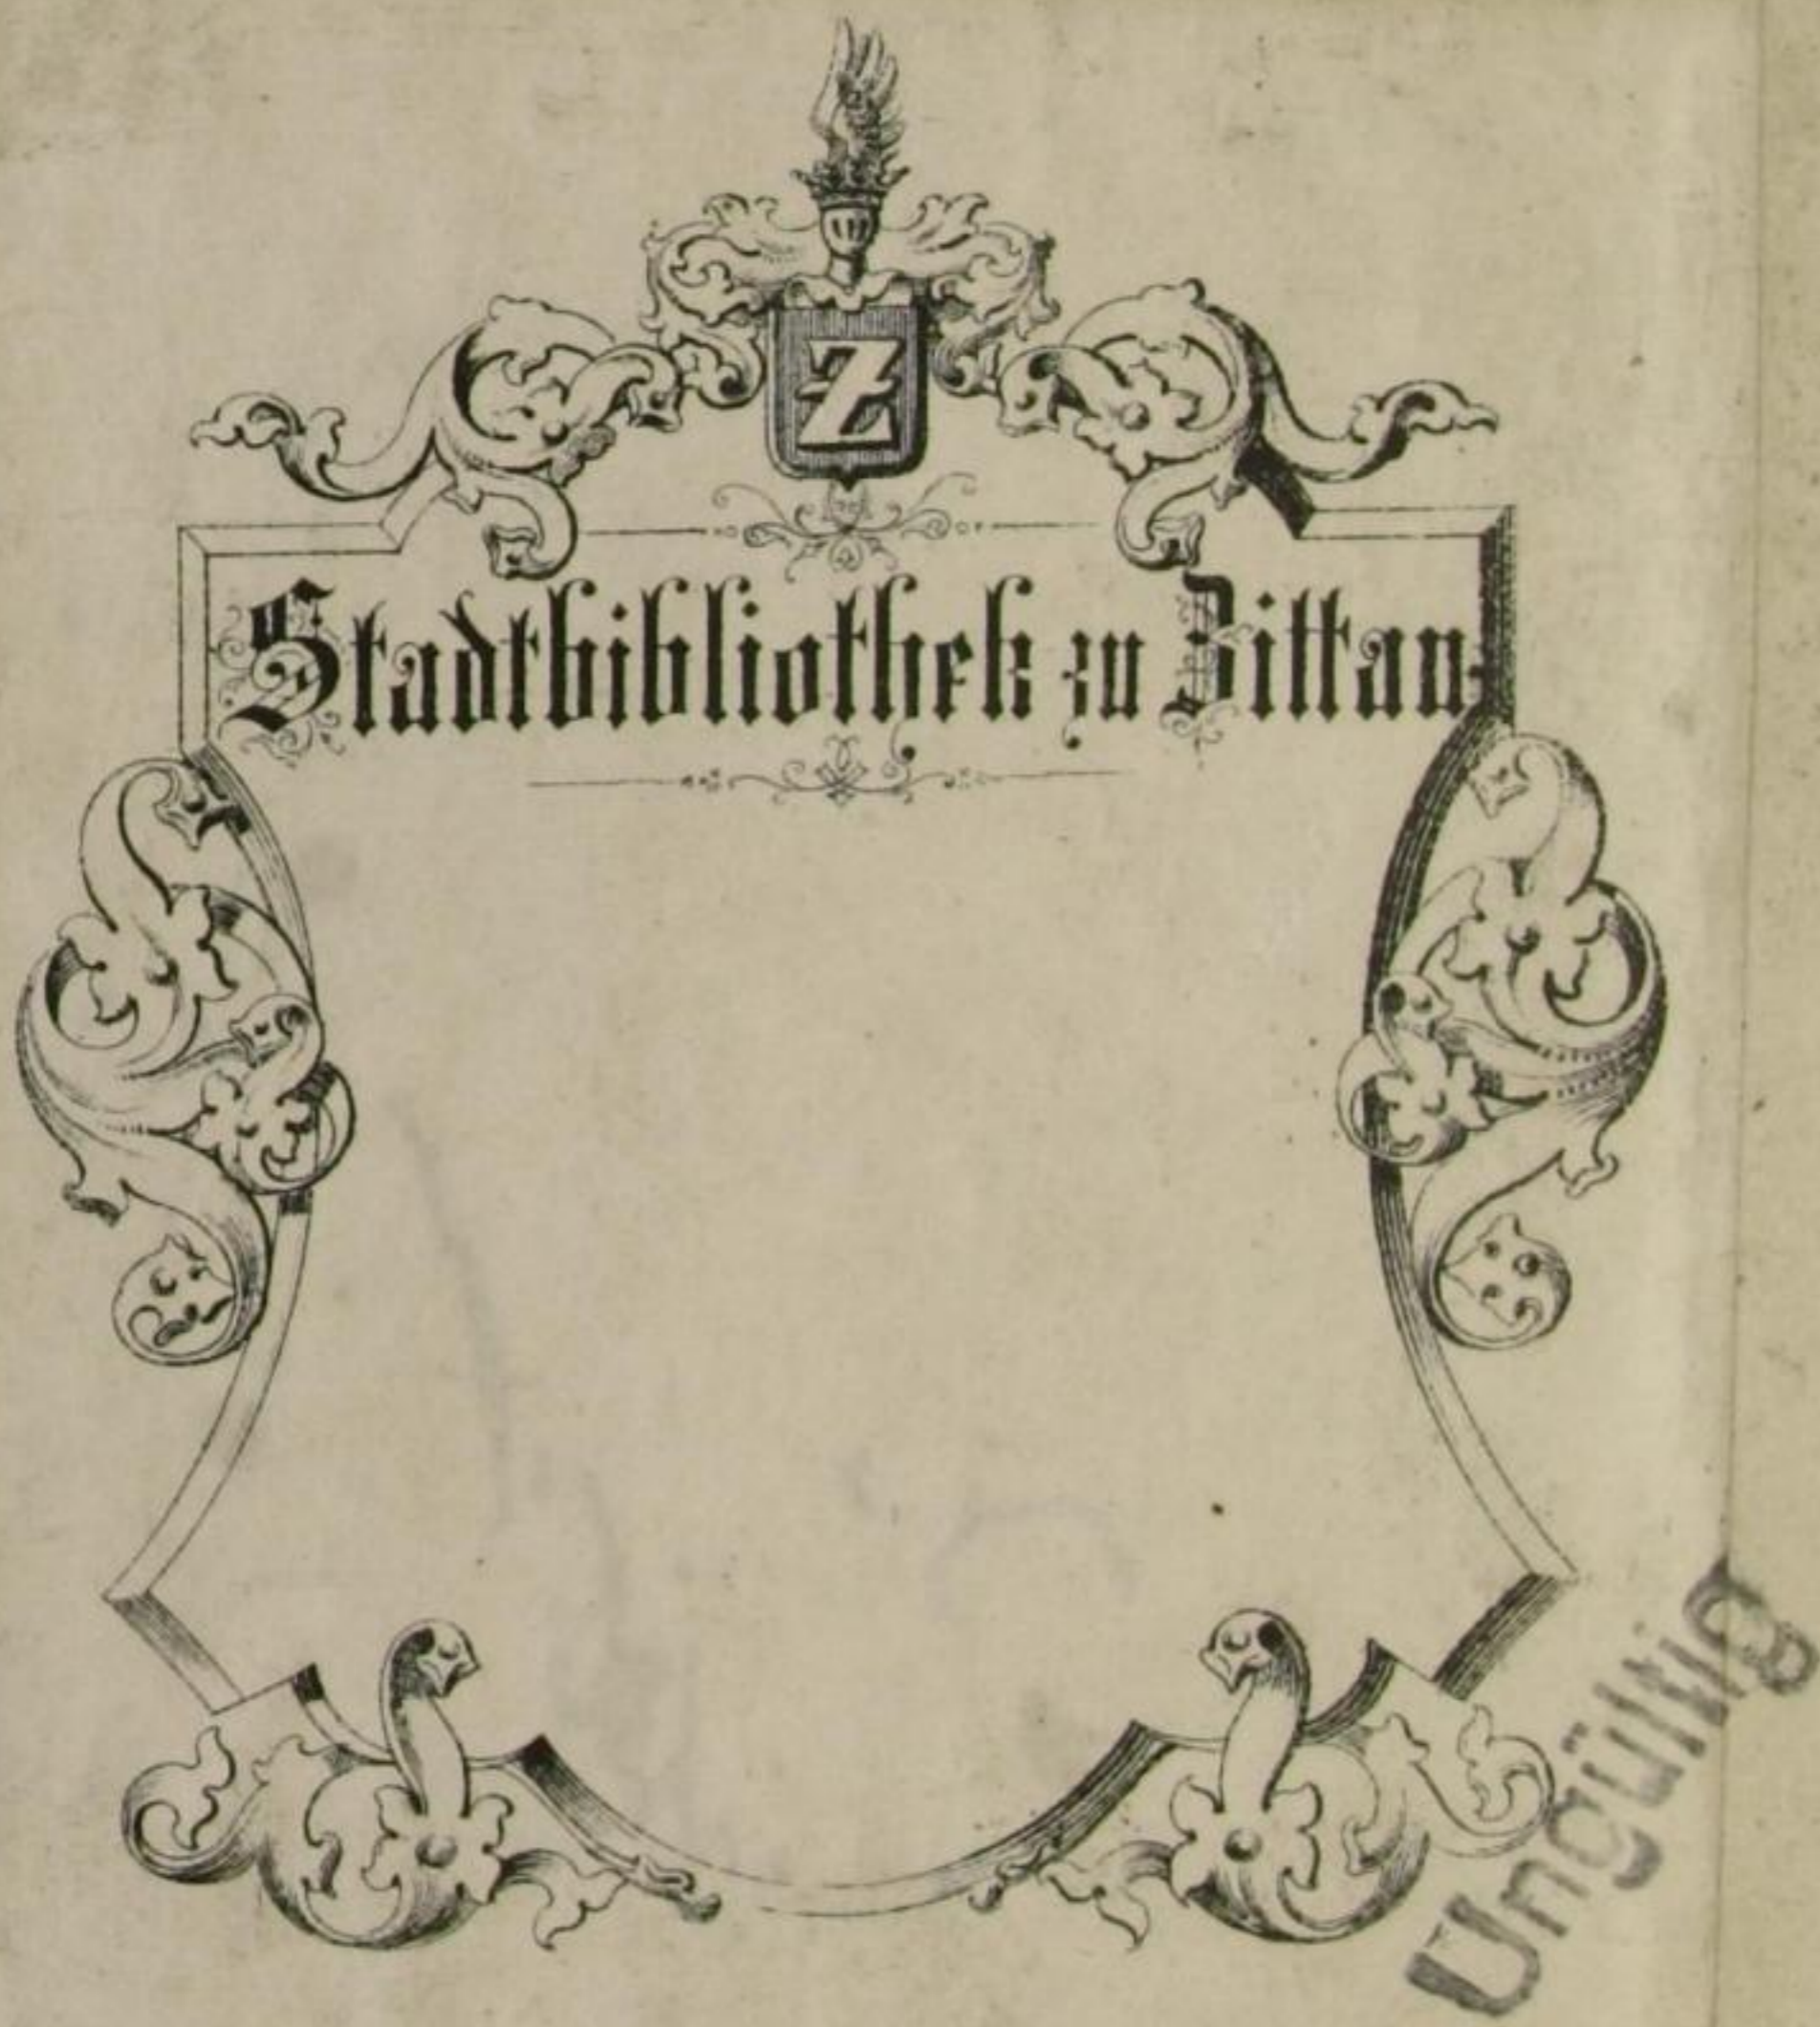 Z
Stadtbibliothek zu Zittau
Ungültig